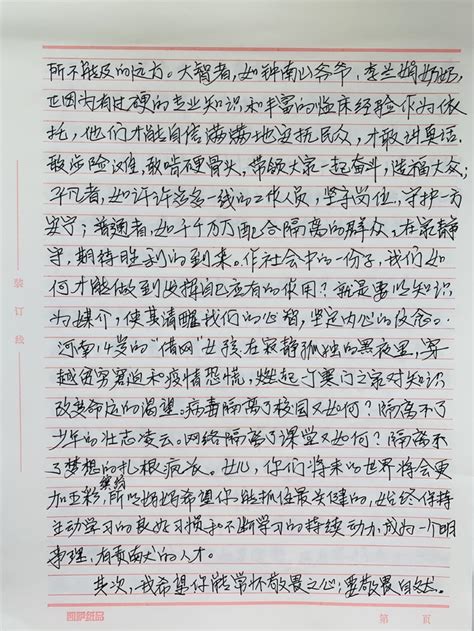 所不能及的远方。大智者，如钟南山爷爷，李兰娟奶奶，
正因为有过硬的专业知识和丰富的临床经验作为依
托，他们才能自信满满地迎抗民众，才敢讲真话，
敢涉险难，敢啃硬骨头，带领大家一起奋斗，造福大众；
平凡者，如许许多多一线的工作人员，坚守岗位，守护一方
安宁；普通者，如千千万万配合隔离的群众，在家静
守，期待胜利的到来。作社会中的一份子，我们如
何才能做到发挥自己应有的作用？就是要以知识
为媒介，使其清醒我们的心智，坚定内心的信念。
河南14岁的“借网”女孩在寂静孤独的黑夜里，穿
越贫穷窘迫和疫情恐慌，燃起了寒门之家对知识
改变命运的渴望。病毒隔离了校园又如何？隔离不了
少年的壮志凌云。网络隔离了课堂又如何？隔离不
了梦想的扎根疯长。女儿，你们将来的世界将会更
加缤纷五彩，所以妈妈希望你能抓住最关键的，始终保持
主动学习的良好习惯和不断学习的持续动力，成为一个明
事理，有责任的人才。
其次，我希望你能常怀敬畏之心；要敬畏自然。
装订线
凯萨纸品
第 页